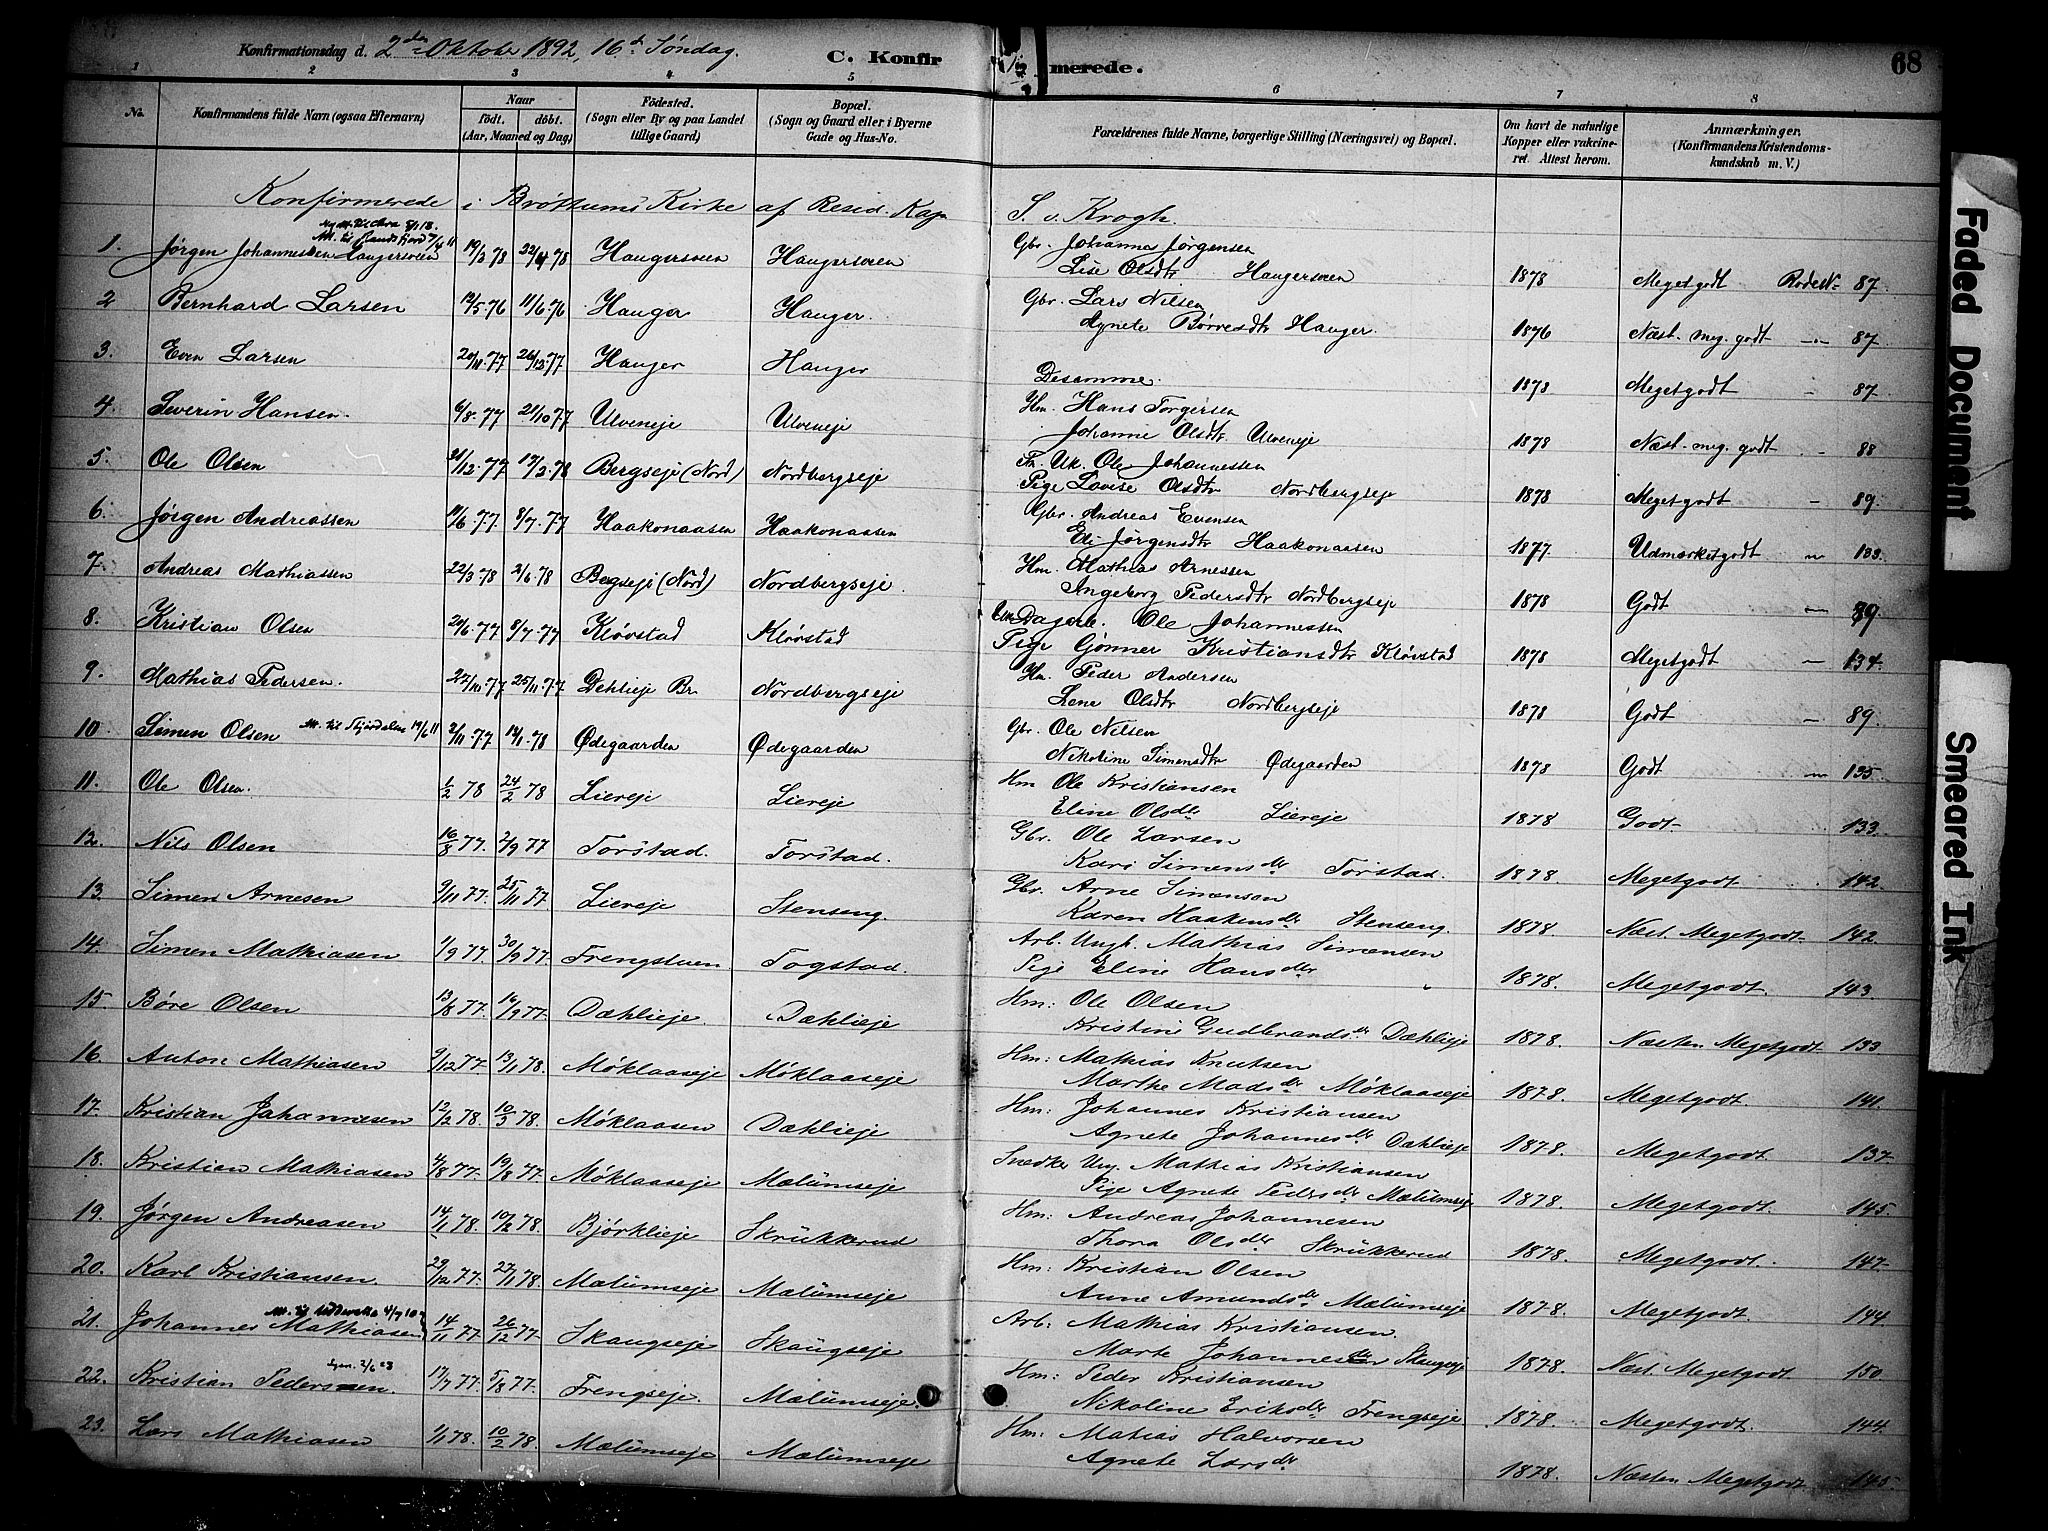 Konfirmationsdag d. 2den Oktober 1892, 16d Søndag. C. Konfirmerede. 68
1 2 3 4 5 6 7 8
No. Konfirmandens fulde Navn (ogsaa Efternavn) Naar födt. döbt. (Aar, Maaned og Dag) Födested. (Sogn eller By og paa Landet tillige Gaard) Bopæl. (Sogn og Gaard eller i Byerne Gade og Hus-No. Forældrenes fulde Navne, borgerlige Stilling (Næringsvei) og Bopæl. Om havt de naturlige Kopper eller vakcineret. Attest herom. Anmærkninger. (Konfirmandens Kristendomskundskab m. V.)
Konfirmerede i Brøttums Kirke af Resid. Kap S. v. Krogh.
1. Jørgen Johannessen Haugersveen 19/3 78 22/4 78 Haugersveen Haugersveen Gbr. Johannes Jørgensen
Lise Olsdtr Haugersveen 1878 Megetgodt Rode N. 87.
2 Bernhard Larsen 19/5 76 11/6 76 Hauger Hauger. Gbr. Lars Nilsen
Agnete Børresdtr Hauger. 1876 Næst. meg. godt -"- 87.
3. Even Larsen 20/11 77 26/12 77 Hauger Hauger Desamme. 1878 Megetgodt - 87
4. Severin Hansen. 6/8 77 21/10 77 Ulveneje Ulveneje Hm. Hans Torgersen
Johanne Olsdtr Ulveneje 1878 Næst. meg. godt - 88
5. Ole Olsen 31/12 77 17/2 78 Bergseje (Nord) Nordbergseje Fn. Uk. Ole Johannessen
Pige Lovise Olsdtr Nordbergseje 1878 Megetgodt - 89.
6. Jørgen Andreassen 11/6 77 8/7 77 Haakonaasen Haakonaasen Gbr. Andreas Evensen
Eli Jørgensdtr Haakonaasen 1877 Udmærketgodt " 133.
7. Andreas Mathiassen 22/3 78 2/6 78 Bergseje (Nord) Nordbergseje. Hm. Mathias Arnessen
Ingeborg Pedersdtr Nordbergseje 1878 Godt - 89.
8. Kristian Olsen 21/6 77 8/7 77 Kløvstad Kløvstad Em Dagarb. Ole Johannessen
Pige Gønner Kristiansdtr Kløvstad 1878 Megetgodt - 134.
9. Mathias Pedersen. 22/10 77 25/11 77 Dehlieje Br. Nordbergseje Hm. Peder Andersen
Lene Olsdtr Nordbergseje 1878 Godt - 89.
10 Simen Olsen 2/11 77 12/1 78 Ødegaarden Ødegaarden Gbr. Ole Nilsen
Nikoline Simensdtr Ødegaarden 1878 Godt " 135.
11. Ole Olsen. 1/2 78 24/2 78 Liereje Liereje Hm Ole Kristiansen
Eline Olsdtr Liereje 1878 Godt. 133.
12. Nils Olsen 16/8 77. 2/9 77 Torstad. Torstad. Gbr. Ole Larsen
Kari Simensdtr Torstad. 1878. Megetgodt 142.
13. Simen Arnesen 9/11 77. 25/11 77. Liereje Stenseng. Gbr. Arne Simensen
Karen Haakensdtr Stenseng. 1878. Næst. Megetgodt. 142.
14. Simen Mathiasen 1/9 77. 30/9 77. Frengstuen Togstad. Arb. Ungk. Mathias Simensen
Pige Eline Hansdtr " 1878. Megetgodt. 143.
15. Børe Olsen 13/8 77. 16/9 77. Dæhlieje. Dæhlieje Hm: Ole Olsen
Kristine Gudbrandsdtr Dæhlieje 1878. Næsten Megetgodt. 133
16. Anton Mathiasen 9/12 77. 13/1 78. Møklaaseje Møklaaseje Hm: Mathias Knutsen
Marthe Madsdtr Møklaaseje 1878. Megetgodt 141.
17. Kristian Johannesen 12/2 78. 10/3 78. Møklaasen Dæhlieje Hm: Johannes Kristiansen
Agnete Johannesdtr Dæhlieje 1878. Megetgodt. 137.
18. Kristian Mathiasen 4/8 77. 19/8 77. Møklaaseje Mælumseje Snedker Ung. Mathias Kristiansen
Pige Agnete Pedersdtr Mælumseje 1878. Megetgodt. 145.
19. Jørgen Andreasen 14/1 78. 10/2 78. Bjørklieje Skrukkerud Hm: Andreas Johannesen
Thora Olsdtr Skrukkerud 1878. Megetgodt. 147.
20. Karl Kristiansen 29/12 77. 27/1 78. Mælumseje Mælumseje Hm: Kristian Olsen
Anne Amundsdtr Mælumseje 1878. Megetgodt. 144.
21. Johannes Mathiasen 14/11 77. 26/12 77. Skaugseje Skaugseje Arb: Mathias Kristiansen.
Marte Johannesdtr Skaugseje 1878. Næst. Megetgodt. 150.
22. Kristian Pedersen. 17/7 77. 5/8 77. Frengseje Mælumseje. Hm: Peder Kristiansen
Nikoline Eriksdtr Frengseje 1878. Megetgodt. 144.
23. Lars Mathiasen 1/1 78. 10/2 78. Mælumseje Mælumseje Hm: Matias Halvorsen
Agnete Larsdtr 1878. Næsten Megetgodt 145.
Faded Document
Smeared Ink